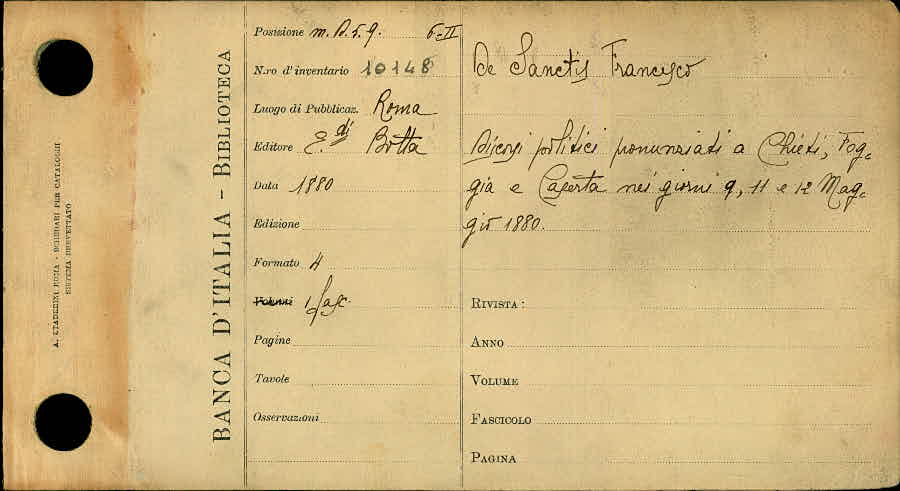 A. STADERINI ROMA - SCHEDARI PER CATALOGHI
SISTEMA BREVETTATO
BANCA D'ITALIA - BIBLIOTECA
Posizione m. B. 5. 9. 6-II
N.ro d'inventario 10148
Luogo di Pubblicaz. Roma
Editore E.di Botta
Data 1880
Edizione
Formato 4
Volumi 1 fasc.
Pagine
Tavole
Osservazioni
De Sanctis Francesco
Discorsi politici pronunziati a Chieti, Fog-
gia e Caserta nei giorni 9, 11 e 12 Mag-
gio 1880.
RIVISTA:
ANNO
VOLUME
FASCICOLO
PAGINA